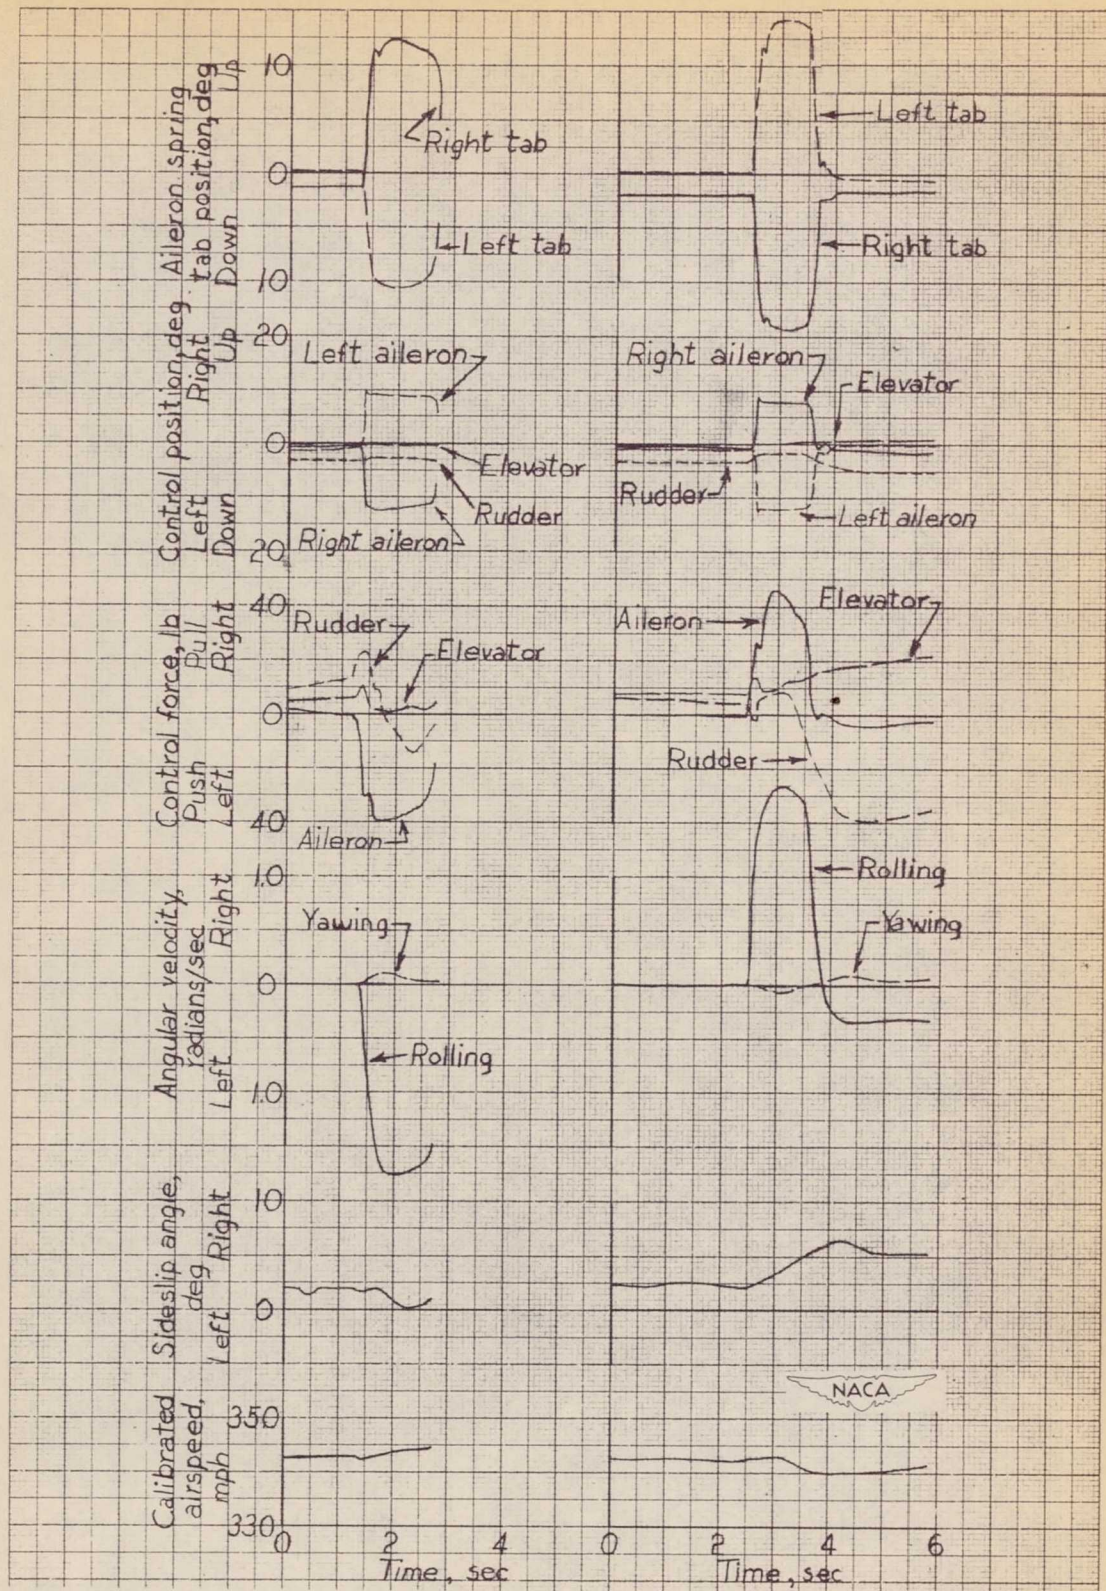 Aileron spring
tab position, deg
Down Up
10
0
10
Right tab
Left tab
Left tab
Right tab
Control position, deg
Left Right
Down Up
20
0
20
Left aileron
Elevator
Rudder
Right aileron
Right aileron
Elevator
Rudder
Left aileron
Control force, lb
Push Pull
Left Right
40
0
40
Rudder
Elevator
Aileron
Aileron
Elevator
Rudder
Angular velocity,
radians/sec
Left Right
1.0
0
1.0
Yawing
Rolling
Rolling
Yawing
Sideslip angle,
deg
Left Right
10
0
NACA
Calibrated
airspeed,
mph
350
330
0 2 4
Time, sec
0 2 4 6
Time, sec